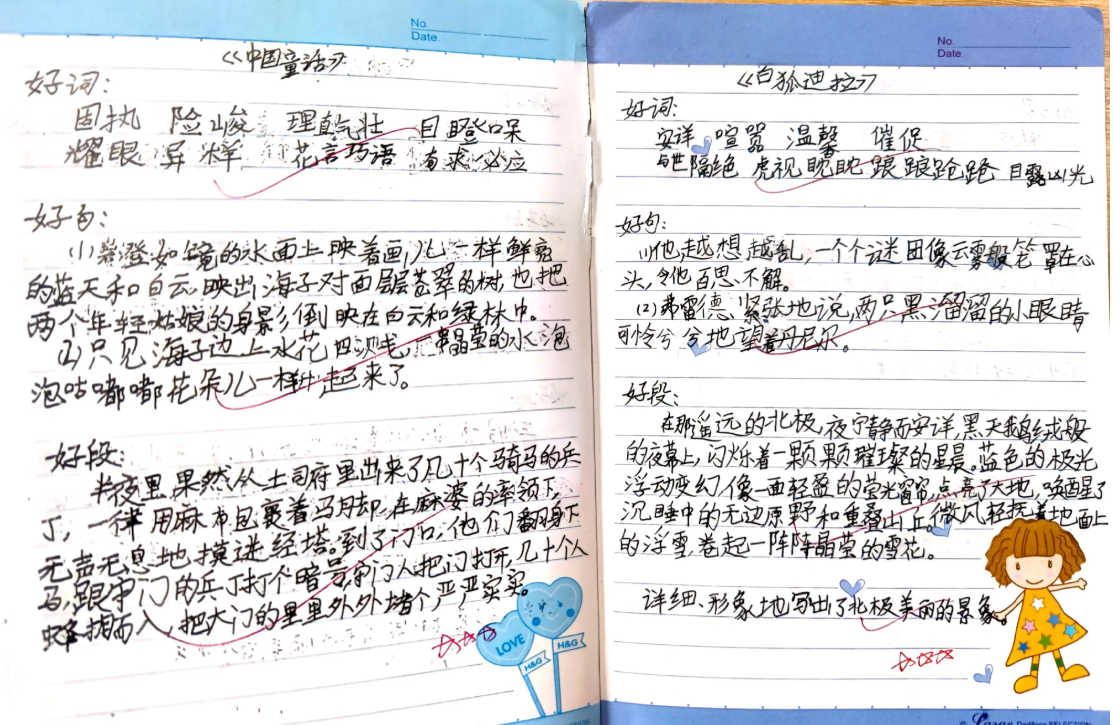 No.
Date.
《中国童话》
好词:
固执 险峻 理直气壮 目瞪口呆
耀眼 异样 花言巧语 有求必应
好句:
(1)澄如镜的水面上映着画儿一样鲜亮
的蓝天和白云,映出海子对面层层苍翠的树,也把
两个年轻姑娘的身影倒映在白云和绿林中。
(2)只见海子边上水花四溅,一串晶莹的水泡
泡咕嘟嘟花朵儿一样升起来了。
好段:
半夜里果然从土司府里出来了几十个骑马的兵
丁,一律用麻布包裹着马蹄,在麻婆的率领下,
无声无息地摸进经塔。到了门口,他们翻身下
马,跟守门的兵丁打个暗号,守门人把门打开,几十个人
蜂拥而入,把大门的里里外外堵个严严实实。
LOVE
H&G
H&G
No.
Date.
《白狐迪拉》
好词:
安详 喧嚣 温馨 催促
与世隔绝 虎视眈眈 踉踉跄跄 目露凶光
好句:
(1)他越想越乱,一个个谜团像云雾般笼罩在心
头,令他百思不解。
(2)弗雷德紧张地说,两只黑溜溜的小眼睛
可怜兮兮地望着丹尼尔。
好段:
在那遥远的北极,夜宁静而安详,黑天鹅绒般
的夜幕上,闪烁着一颗颗璀璨的星晨。蓝色的极光
浮动变幻像一面轻盈的荧光窗帘,点亮了大地,唤醒了
沉睡中的无边原野和重叠山丘。微风轻抚着地面上
的浮雪,卷起一阵阵晶莹的雪花。
详细、形象地写出了北极美丽的景象。